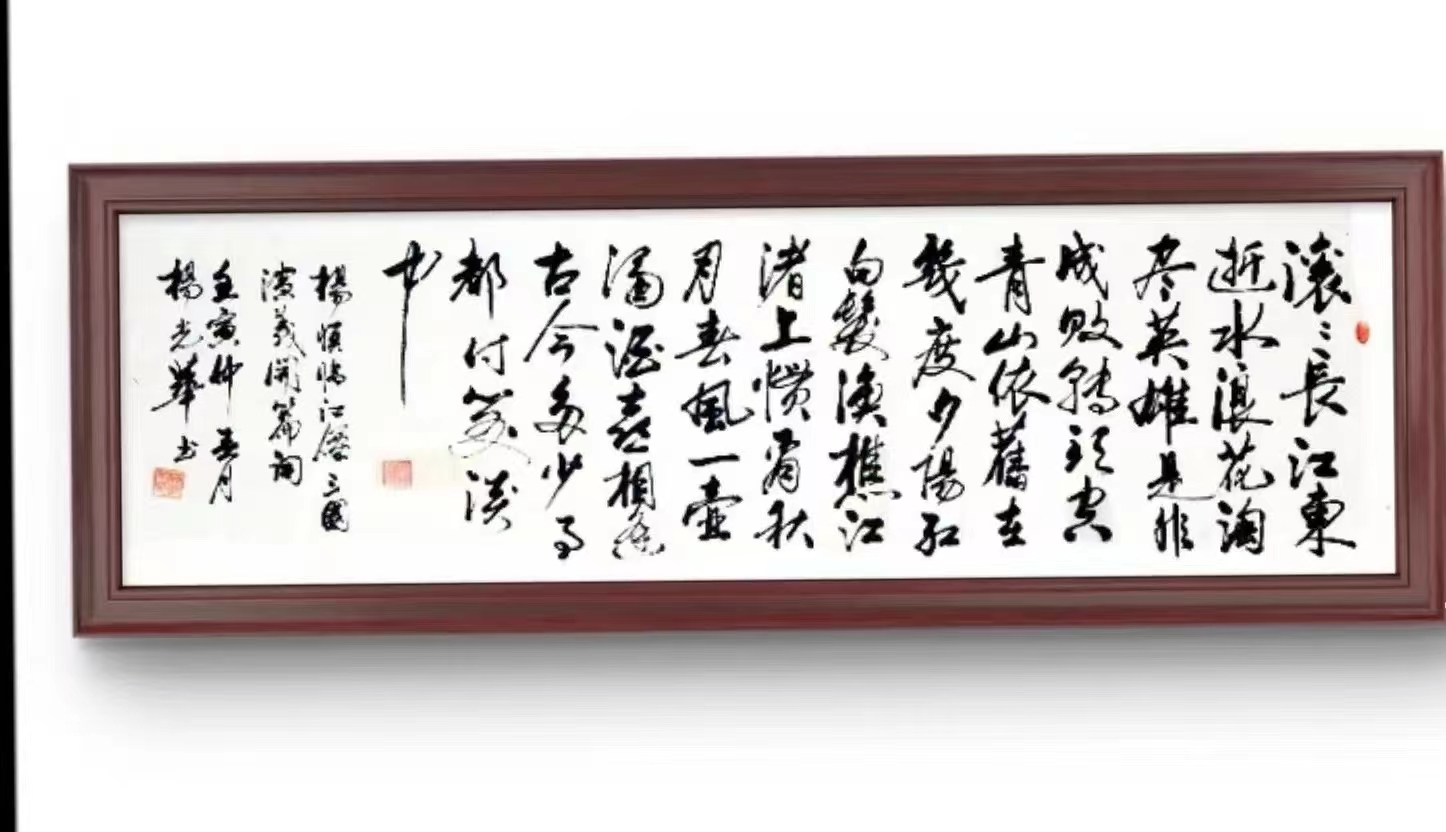 滚〻長江東
逝水浪花淘
尽英雄是非
成败轉头空
青山依舊在
幾度夕陽红
白髮渔樵江
渚上惯看秋
月春風一壶
濁酒喜相逢
古今多少事
都付笑谈
中
楊慎临江僊三國
演义開篇词
壬寅仲月
楊光華书